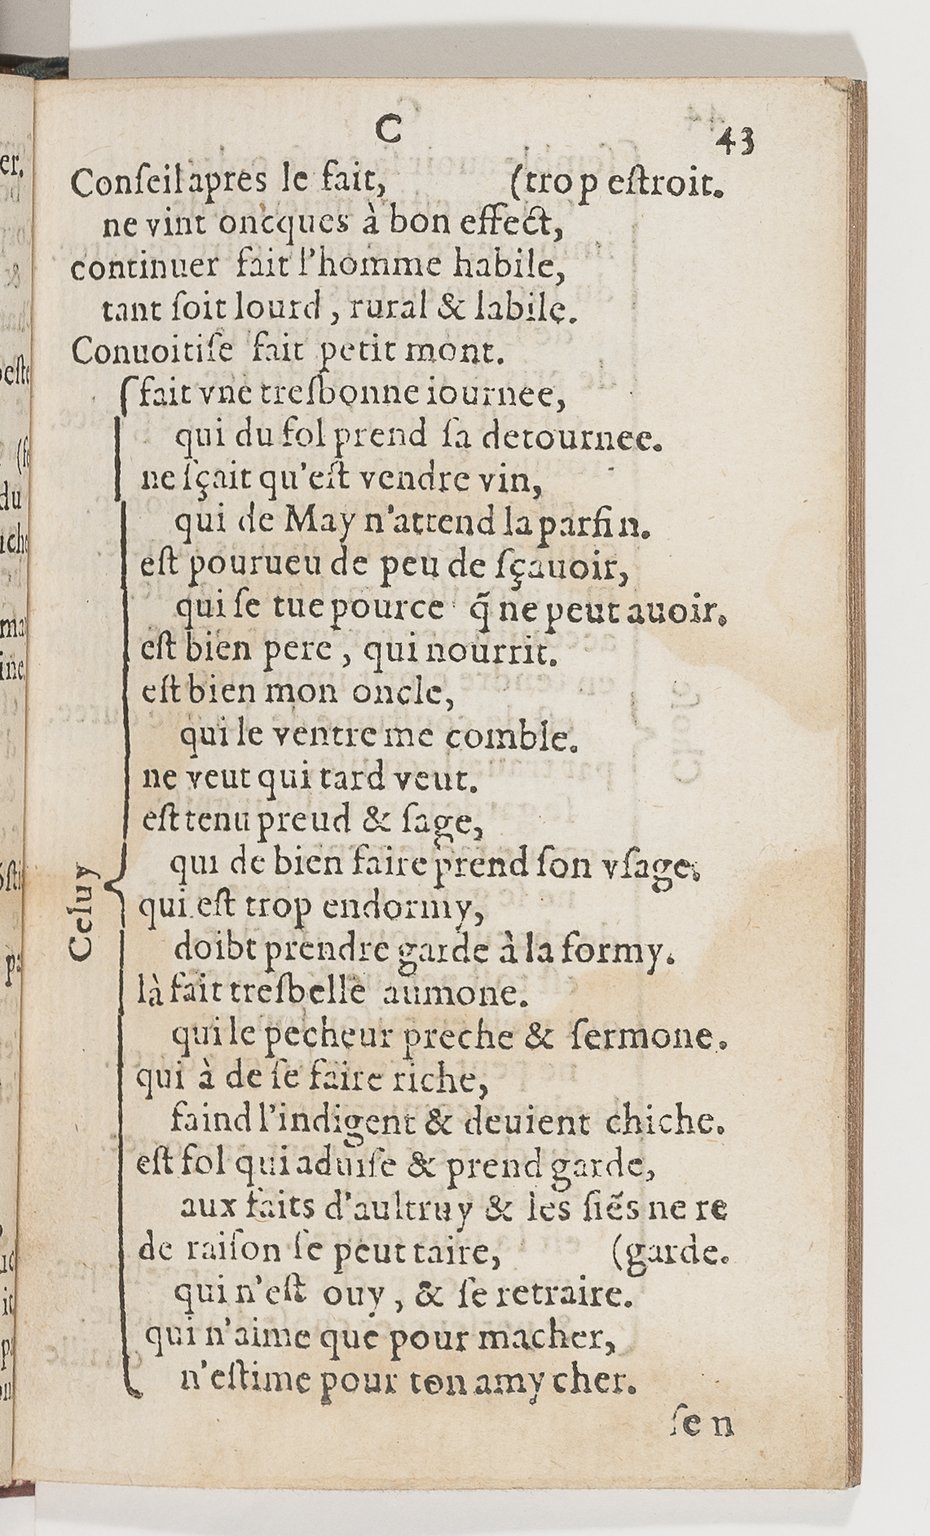 C 43
Conſeil apres le fait, (trop eſtroit.
ne vint oncques à bon effect,
continuer fait l'homme habile,
tant ſoit lourd, rural & labile.
Conuoitiſe fait petit mont.
fait vne treſbonne iournee,
qui du fol prend ſa detournee.
ne ſçait qu'eſt vendre vin,
qui de May n'attend la parfin.
eſt pourueu de peu de ſçauoir,
qui ſe tue pource q̃ ne peut auoir.
eſt bien pere, qui nourrit.
eſt bien mon oncle,
qui le ventre me comble.
ne veut qui tard veut.
eſt tenu preud & ſage,
qui de bien faire prend ſon vſage.
Celuy
qui eſt trop endormy,
doibt prendre garde à la formy.
là fait treſbelle aumone.
qui le pecheur preche & ſermone.
qui à de ſe faire riche,
faind l'indigent & deuient chiche.
eſt fol qui aduiſe & prend garde,
aux faits d'aultruy & les ſiẽs ne re
de raiſon ſe peut taire, (garde.
qui n'eſt ouy, & ſe retraire.
qui n'aime que pour macher,
n'eſtime pour ton amy cher.
ſen